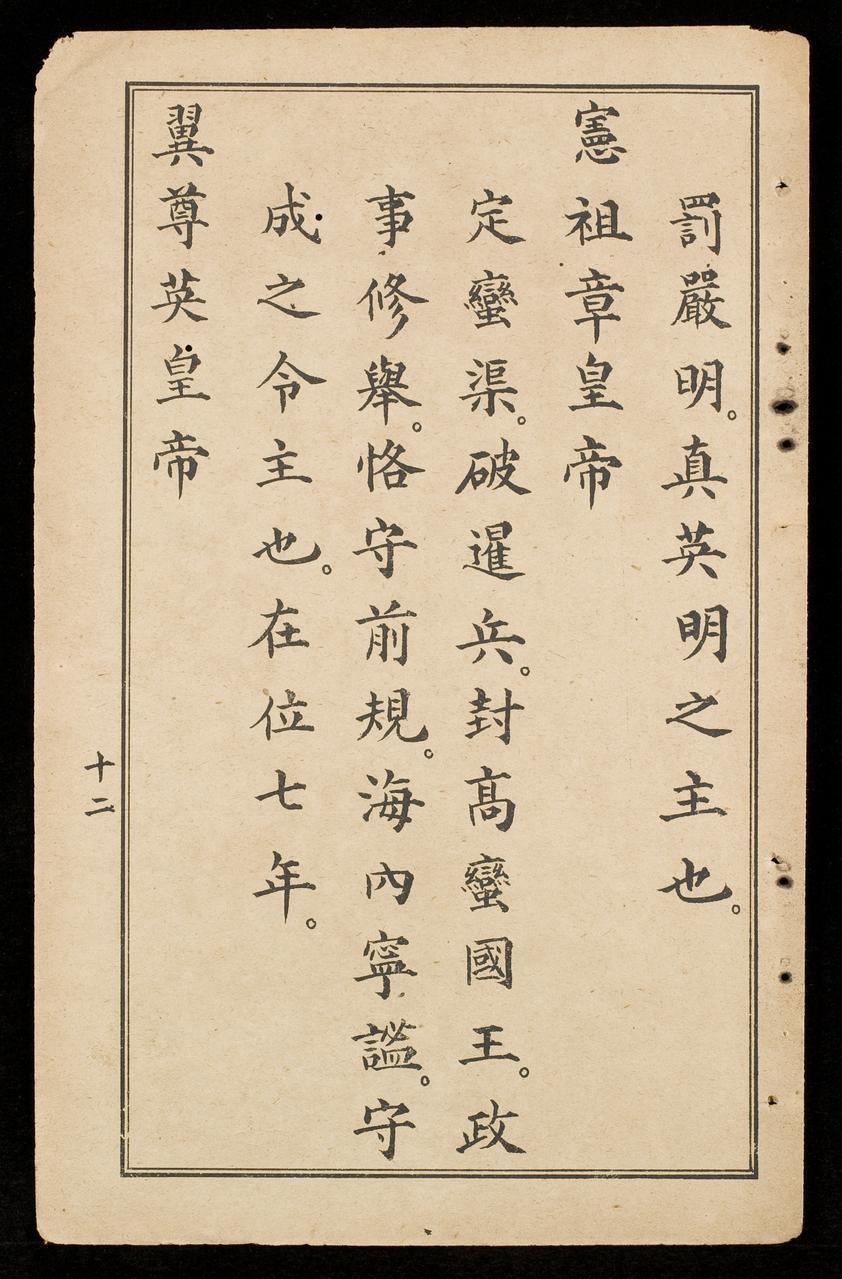 罰嚴明。真英明之主也。
憲祖章皇帝
定蠻渠。破暹兵。封髙蠻國王。政
事修舉。恪守前規。海內寧謐。守
成之令主也。在位七年。
翼尊英皇帝
十二